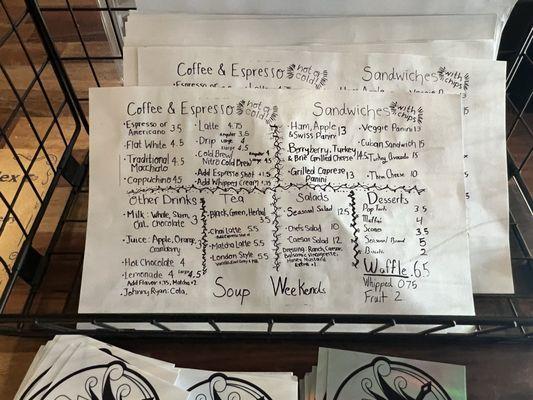 Coffee & Espresso hot or cold!
Sandwiches with chips
Coffee & Espresso hot or cold!
· Espresso or Americano 3.5
· Flat White 4.5
· Traditional Macchiato 4.5
· Cappuchino 4.5
· Latte 4.75
· Drip regular 3.5
large 4.5
· Cold Brew/
Nitro Cold Brew
Add Espresso Shot +1.5
Add Whipped Cream
Sandwiches with chips
· Ham, Apple & Swiss Panini 13
· Berryberry, Turkey & Brie Grilled Cheese 14.5
· Grilled Caprese Panini 13
· Veggie Panini 13
· Cuban Sandwich 15
· Turkey Avocado 15
· Three Cheese 10
Other Drinks
· Milk: Whole, Skim, Oat, Chocolate 3
· Juice: Apple, Orange, Cranberry 3
· Hot Chocolate 4
· Lemonade 4 Large 4.5
Add Flavor +.75, Matcha +2
· Johnny Ryan: Cola,
Tea
Black, Green, Herbal 3.5
· Chai Latte 5.5
· Matcha Latte 5.5
· London Style 5.5
Salads
· Seasonal Salad 12.5
· Chefs Salad 10
· Caesar Salad 12
Dressing: Ranch, Caesar, Balsamic Vinaigrette, Honey Mustard
Extra +1
Desserts
Pop Tart 3.5
Muffin 4
Scones 3.5
Seasonal Bread 5
Biscotti 2
Waffle 6.5
Whipped 0.75
Fruit 2
Soup Weekends